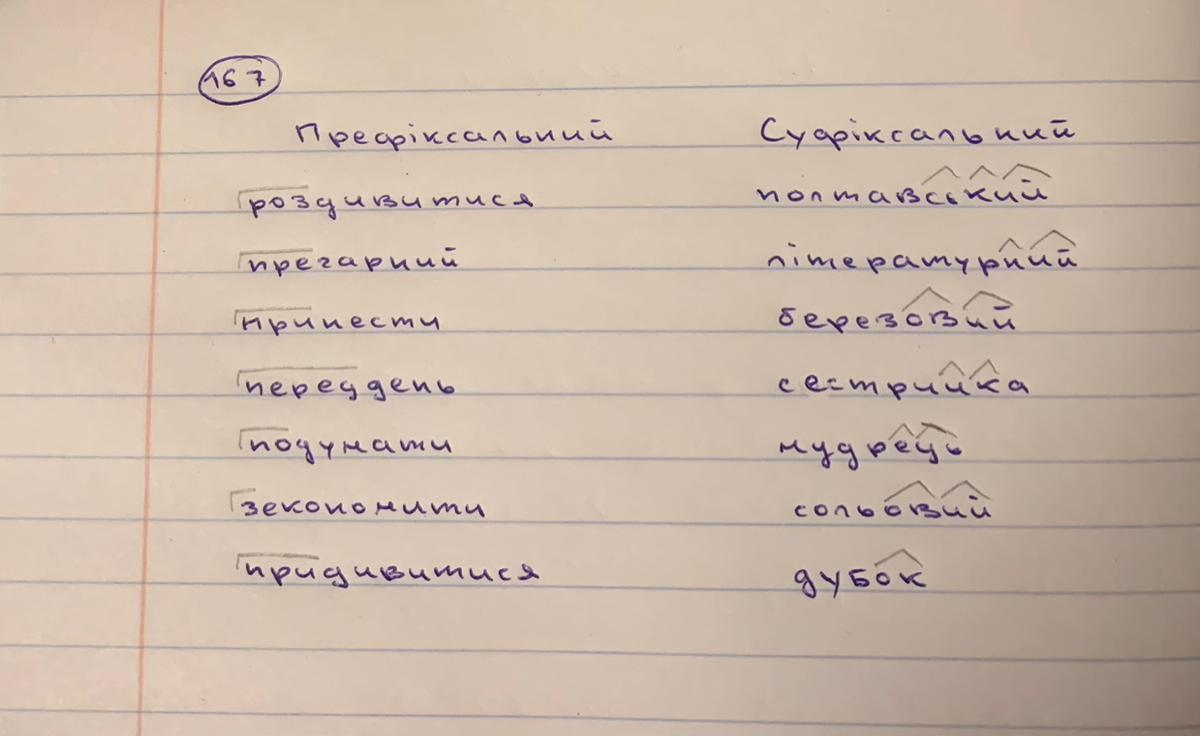 167
Префіксальний Суфіксальний
роздивитися полтавський
прегарний літературний
принести березовий
переддень сестрийка
подумати мудрець
зекономити сольовий
придивитися дубок